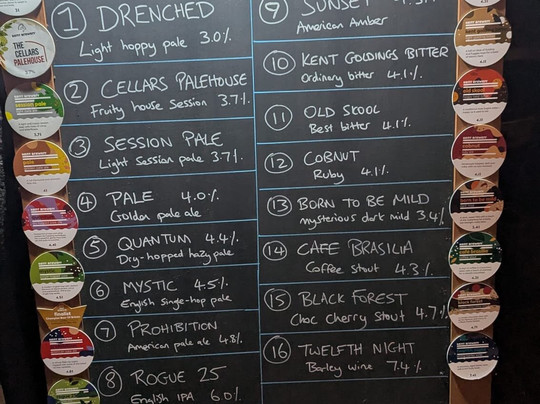 1 DRENCHED
Light hoppy pale 3.0%
2 CELLARS PALEHOUSE
Fruity house Session 3.7%
3 SESSION PALE
Light Session pale 3.7%
4 PALE 4.0%
Golden pale ale
5 QUANTUM 4.4%
Dry-hopped hazy pale
6 MYSTIC 4.5%
English Single-hop pale
7 PROHIBITION
American pale ale 4.8%
8 ROGUE 25
English IPA 6.0%
9 SUNSET
American Amber
10 KENT GOLDINGS BITTER
Ordinary bitter 4.1%
11 OLD SKOOL
Best bitter 4.1%
12 COBNUT
Ruby 4.1%
13 BORN TO BE MILD
mysterious dark mild 3.4%
14 CAFE BRASILIA
Coffee stout 4.3%
15 BLACK FOREST
Choc Cherry Stout 4.7%
16 TWELFTH NIGHT
Barley wine 7.4%
THE
CELLARS
PALEHOUSE
3.7%